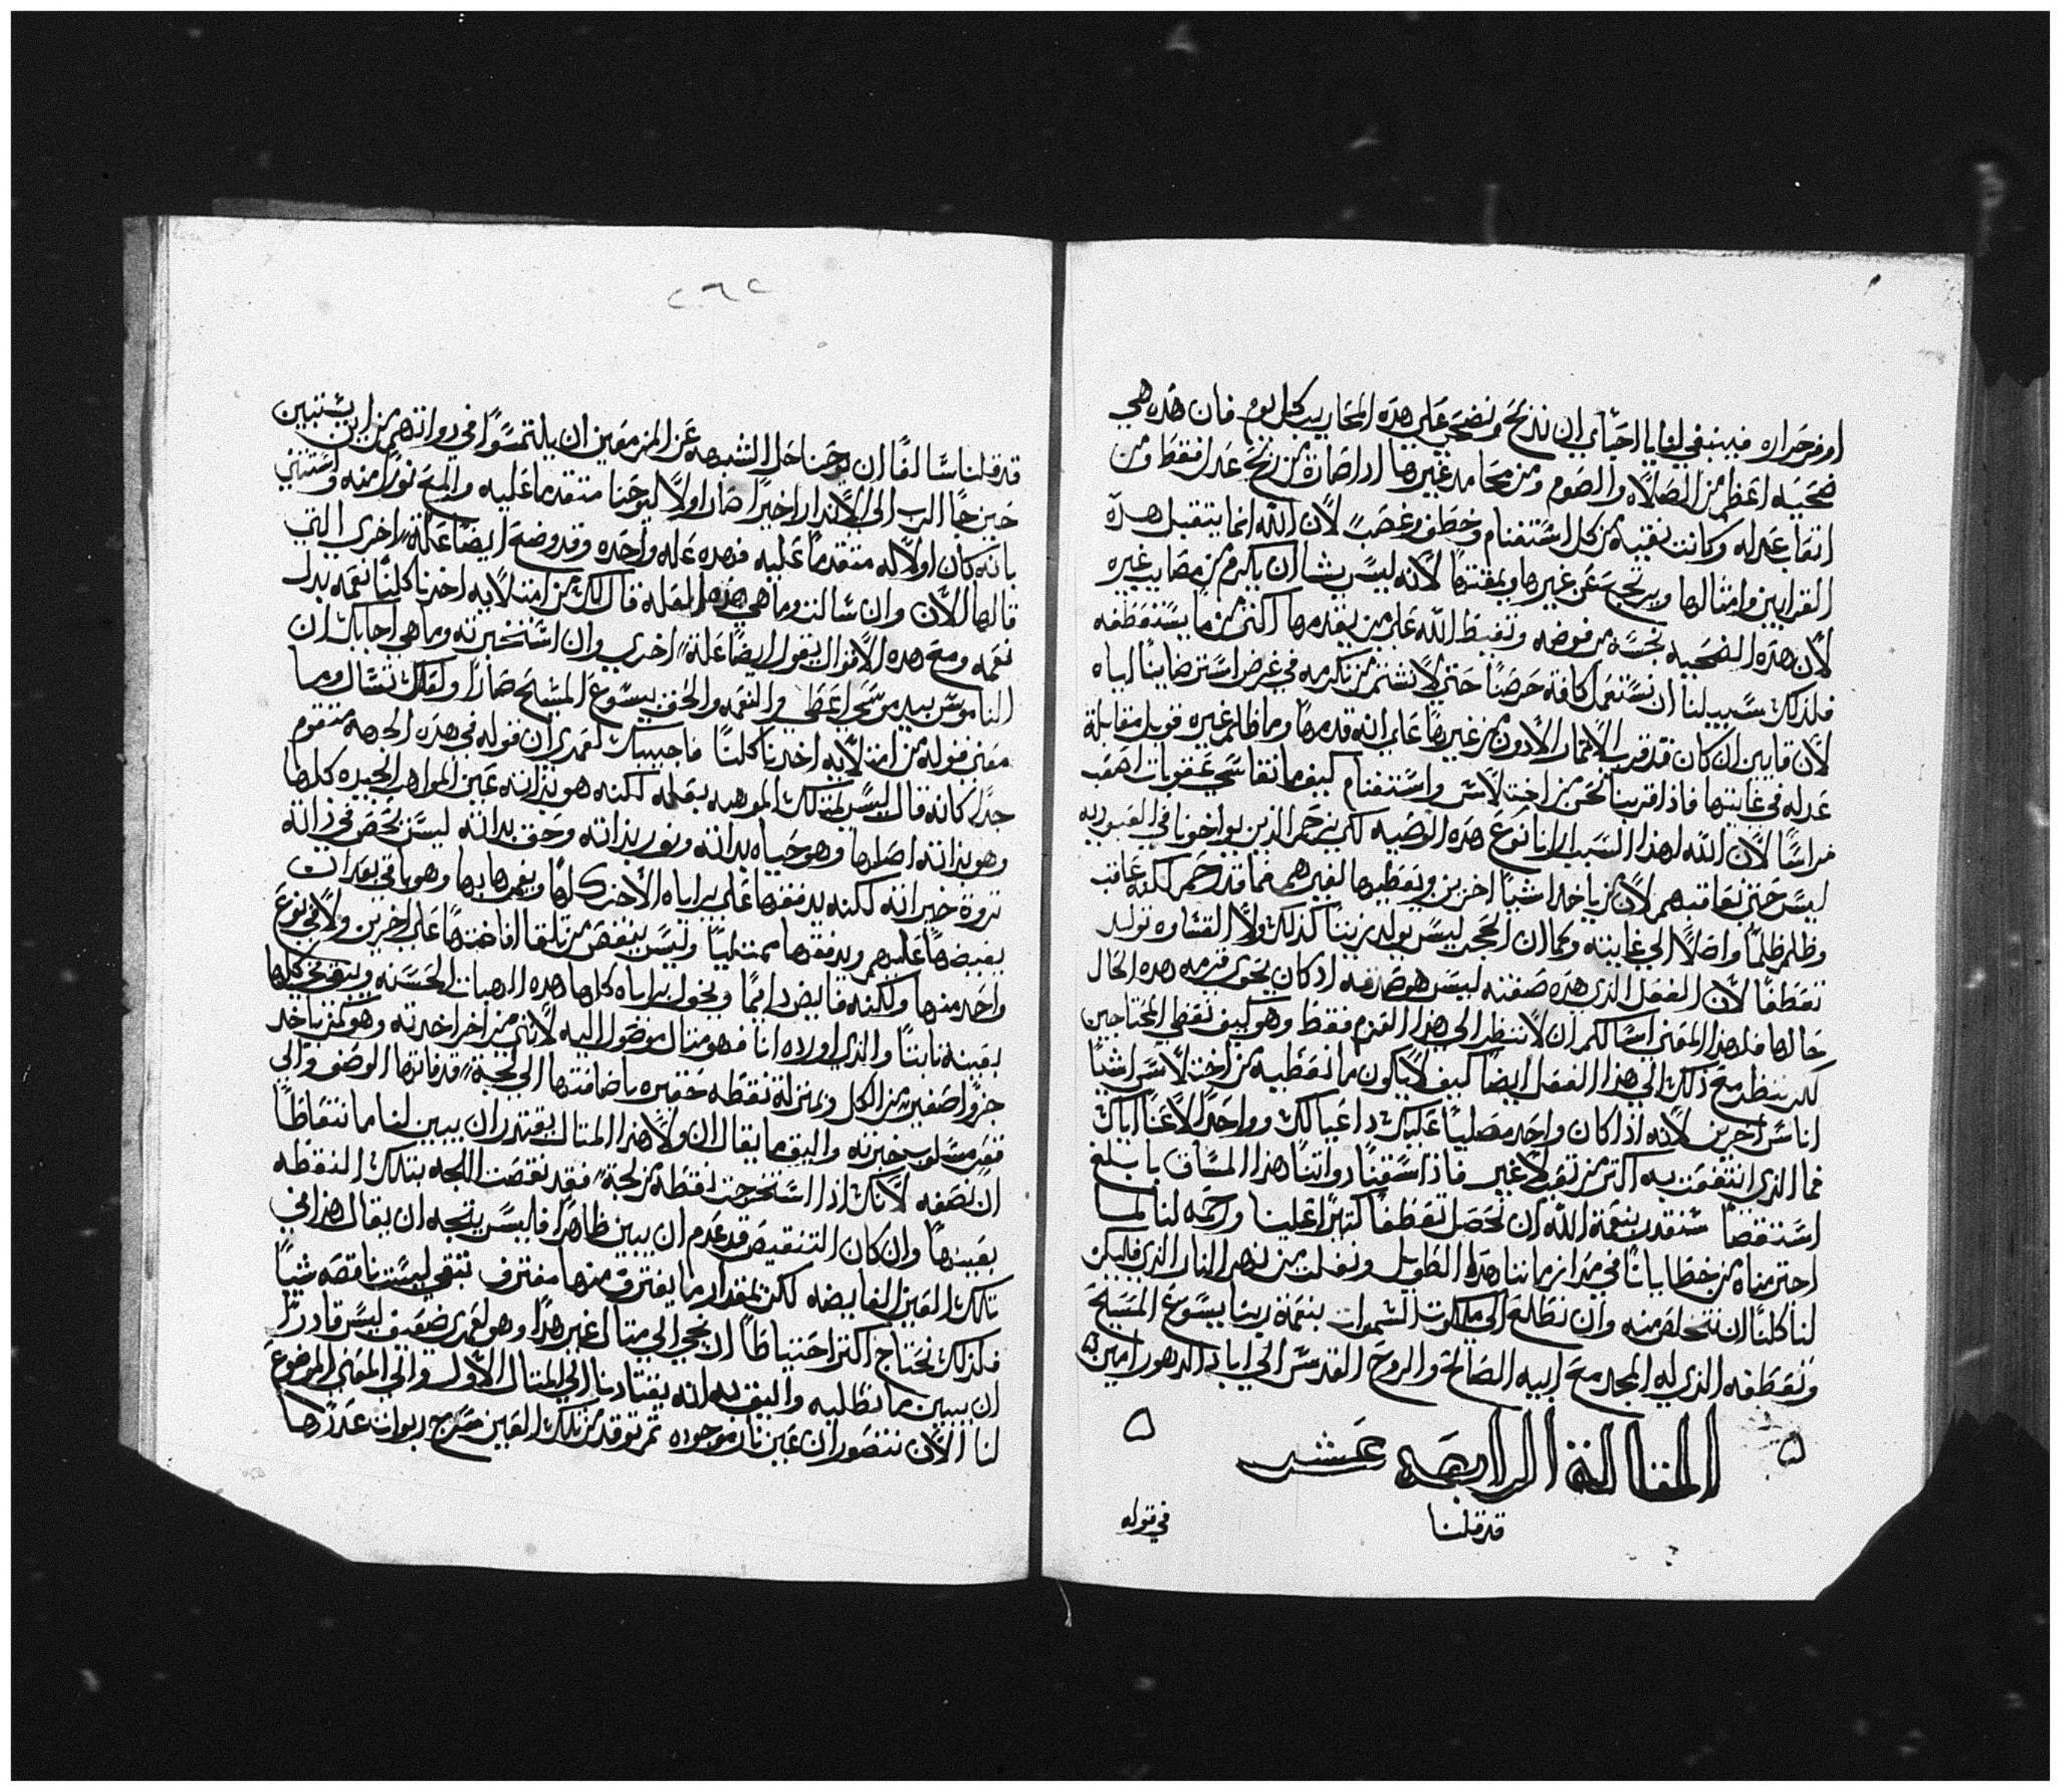 او من حداه فينبغي لنا يا احباي ان نذبح ونضحي علي هده المحاريب كل يوم فان هده هي
ضحيه اعظم من الصلاه والصوم ومن محامد غيرها اداصارة من ربح عدل فقط ومن
اتعاب عدله وكانت نقيه من كل اشتغنام وخطف وغصب لان الله انما يتقبل هده
القرابين وامثالها ويرتجع عن غيرها ويمقتها لانه ليس يشا ان يكرم من مصايب غيره
لان هده الضحيه نجسه مرفوضه وتغيظ الله علي من يقدمها اكثر من ما يستعطفه
فلذلك سبيلنا ان نستعمل كافة حرصنا حتي لا نشتم من نكرمه في غرض استرضاينا اياه
لان قايين ان كان قد قرب الاتمار الادون من غيرها علي انه قدمها وما ظلم غيره قوبل مقابلة
عدله في غايتها فاذا قربنا نحن من اختلاس واستغنام كيف ما نقاسي عقوبات اصعب
مراسًا لان الله لهذا السبب ارانا نوع هده الوصيه لكي نرحم الذين يواخونا في العبوديه
ليس حتي نعاقبهم لان من ياخد اشيا اخرين ويعطيها لغيرهم فما قد رحم لكنه عاقب
وظلم ظلمًا واصلًا الي غايته وكما ان الحجر ليس يولد زيتًا كذلك ولا القساوه توليد
تعطفًا لان الفعل الذي هده صفته ليس هو صدقه اد كان يحوي قيمه هده الحال
حالها فلهذا المعني اسالكم ان لا ننظر الي هدا القدم فقط وهو كيف نعطي المحتاجين
لكن ننظر مع ذلك الي هذا الفعل ايضا كيف لا يكون ما نعطيه من اختلاس اشيا
اناس اخرين لانه اذا كان واحد مصليًا عليك داعيا لك وواحدا لاعنًا اياك
فما الذي انتفعت به اكتر من تعب لا غير فاذا سقنا دواتنا هذا المساق بابلغ
استقصا سنقدر بنعمة الله ان نحصل تعطفًا كتيرًا علينا ورحمه لنا لما
اجترمناه من خطايانا في مدا زماننا هدا الطويل ونفلت من نهر النار الذي فليكن
لنا كلنا ان نتخلص منه وان نطلع الي ملكوت السموات بنعمة ربنا يسوع المسيح
وتعطفه الذي له المجد مع ابيه الصالح والروح القدس الي اباد الدهور امين
المقالة الرابعه عشر
قد قلنا
في قوله
٢٦٢
قد قلنا سالفًا ان يوحنا حل الشبهه عن المزمعين ان يلتمسوا في دواتهم من اين يستبين
حين جا الرب الي الاندار اخيرًا صار اولًا ليوحنا متقدما عليه والمع نورًا منه واستثني
بانه كان اولًا له متقدمًا عليه فهده عله واحده وقد وضع ايضًا علة اخري التي
قالها الان وان سالت وما هي هده العله قال لك من امتلايه اخدنا كلنا نعمه بدل
نعمه ومع هده الاقوال يقول ايضًا علة اخري وان استخبرته وما هي اجابك ان
الناموس بيد موسي اعطي والنعمه والحق بيسوع المسيح صارا ولعلك تسال وما
معني قوله من امتلايه اخدنا كلنا فاجيبك لعمري ان قوله في هده الجهه متقوم
جدًا كانه قال ليس يمتلك الموهبه بنعمه لكنه هو بذاته عين المواهب الجيده كلها
وهو بذاته اصلها وهو حياه بداته ونور بذاته وحق بداته ليس يحصر في ذاته
تروة خيراته لكنه يدفقها علي براياه الاخر كلها ويغمرها بها وهو باقي بعد ان
يفيضها عليهم ويدفقها ممتليًا وليس ينقص من تلقا افاضتها علي اخرين ولا في نوع
واحد منها ولكنه فايض دايمًا ويخول براياه كلها هده الهبات الحسنه ويبقي في كلها
بعينه ثابتًا والذي اورده انا فهو متال موصول اليه لاني من اخر اخدته وهو كمن ياخد
جزوا صغير من الكل وبمنزلة نقطه حقيره باضافتها الي لجة قد فاتها الوصف والي
فقر مسلوب خيرته واليق ما يقال ان ولا هذا المتال يقتدر ان يبين لنا ما نتعاطا
ان نصفه لانك اذا استخرجت نقطه من لجة فقد نقصت اللجه بتلك النقطه
بعينها وان كان التنقيص قد عدم ان يبين ظاهرًا فليس يتجه ان يقال هذا في
تلك العين الفايضه لكن بمقدار ما يغترف منها مغترف تبقي ليست ناقصه شيا
فلذلك نحتاج اكتر احتياطًا ان نجي الي متال غير هدا وهو لعمري ضعيف ليس قادرًا
ان يبين ما نطلبه واليق به انه يقتادنا الي المتال الاول والي المعني الموضوع
لنا الان نتصور ان عين نار موجوده تم توقد من تلك العين سرج ربوات عددها